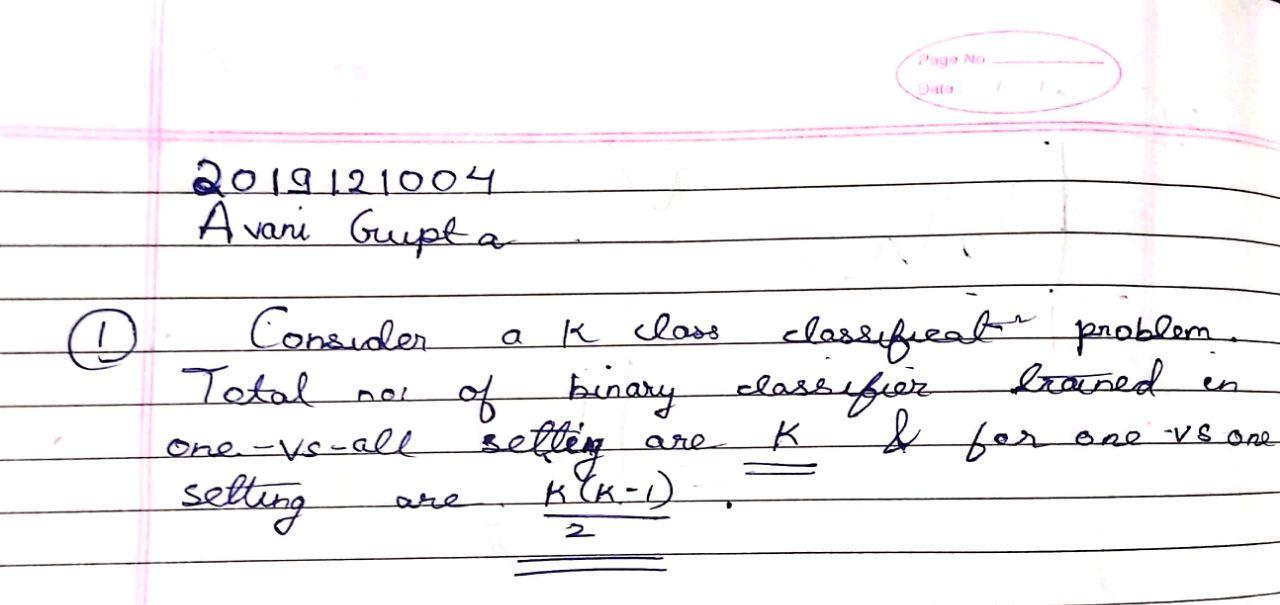 Page No
Date : / /
2019121004
Avani Gupta
① Consider a K class classificatⁿ problem.
Total no: of binary classifier trained in
one-vs-all setting are K & for one-vs one
setting are K(K-1)/2.